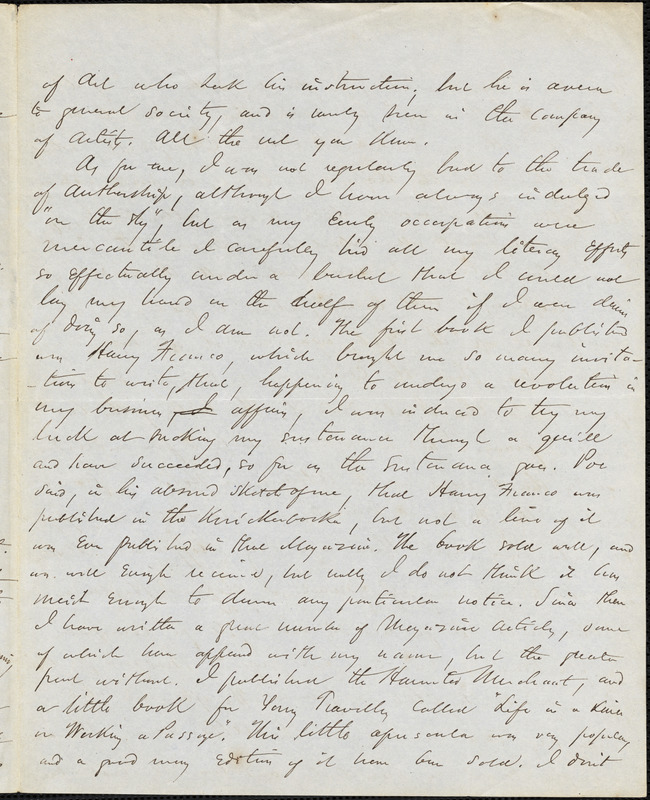 of Art who took his instruction; but he is averse
to general society, and is rarely seen in the company
of Artists. All the rest you know.
As for me, I was not regularly bred to the trade
of Authorship, although I have always indulged
"on the sly", but as my Early occupations were
mercantile I carefully hid all my literary Efforts
so Effectually under a bushel that I could not
lay my hand on the half of them if I were desirous
of doing so, as I am not. The first book I published
was Harry Franco, which brought me so many invita-
-tions to write, that, happening to undergo a revolution in
my business affairs, I was induced to try my
luck at sucking my sustenance through a quill
and have succeeded, so far as the sustenance goes. Poe
said, in his absurd sketch of me, that Harry Franco was
published in the Knickerbocker, but not a line of it
was Ever published in that Magazine. The book sold well, and
was well Enough received, but really I do not think it has
merit Enough to deserve any particular notice. Since then
I have written a great number of Magazine articles, some
of which have appeared with my name, but the greater
part without. I published the Haunted Merchant, and
a little book for Young Travellers called "Life in a
or Working a Passage". This little was very popular
and a good many Editions of it have been sold. I don't